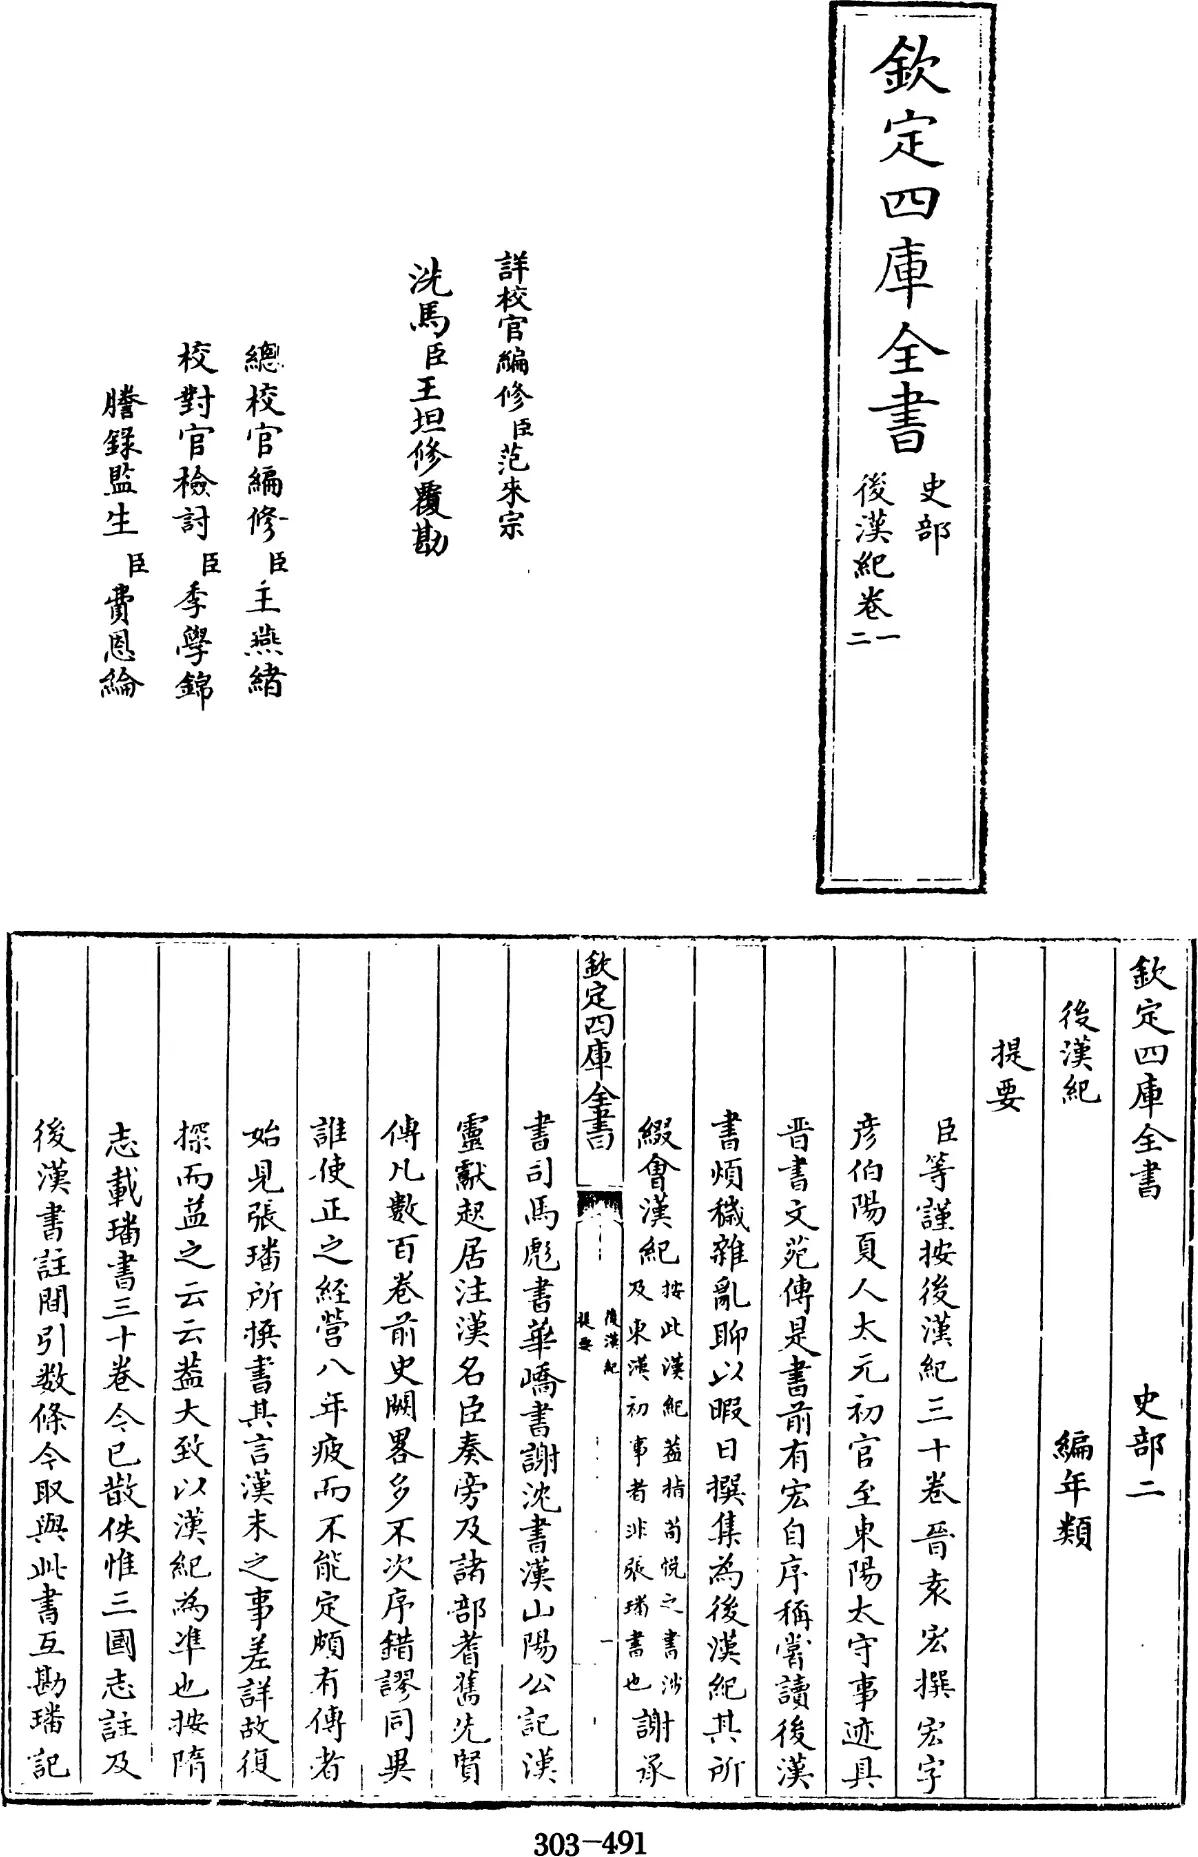 欽定四庫全書
史部
後漢紀卷一
二
詳校官編修臣范來宗
洗馬臣王坦修覆勘
總校官編修臣王燕緒
校對官檢討臣季學錦
謄錄監生臣費恩綸
欽定四庫全書 史部二
後漢紀 編年類
提要
臣等謹按後漢紀三十卷晉袁宏撰宏字
彥伯陽夏人太元初官至東陽太守事迹具
晉書文苑傳是書前有宏自序稱嘗讀後漢
書煩穢雜亂聊以暇日撰集為後漢紀其所
綴會漢紀按此漢紀蓋指荀悅之書涉
及東漢初事者非張璠書也謝承
欽定四庫全書
後漢紀
提要
一
書司馬彪書華嶠書謝沈書漢山陽公記漢
靈獻起居注漢名臣奏旁及諸部耆舊先賢
傳凡數百卷前史闕畧多不次序錯謬同異
誰使正之經營八年疲而不能定頗有傳者
始見張璠所撰書其言漢末之事差詳故復
探而益之云云蓋大致以漢紀為準也按隋
志載璠書三十卷今已散佚惟三國志註及
後漢書註間引數條今取與此書互勘璠記
303-491